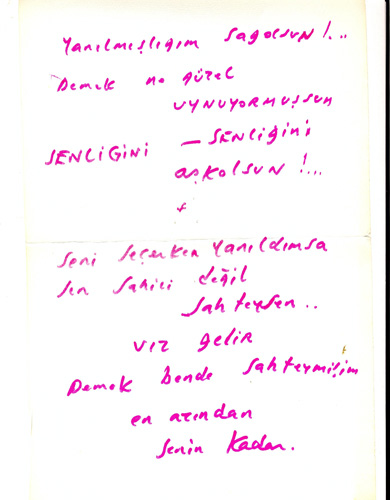 Yanılmışlığım sağolsun!...
Demek ne güzel
uynuyormuşsun
SENLİĞİNİ – SENliğini
aşkolsun!...
Seni seçerken yanıldımsa
sen sahici değil
sahteysen..
vız gelir
Demek bende sahteymişim
en azından
senin kadar.